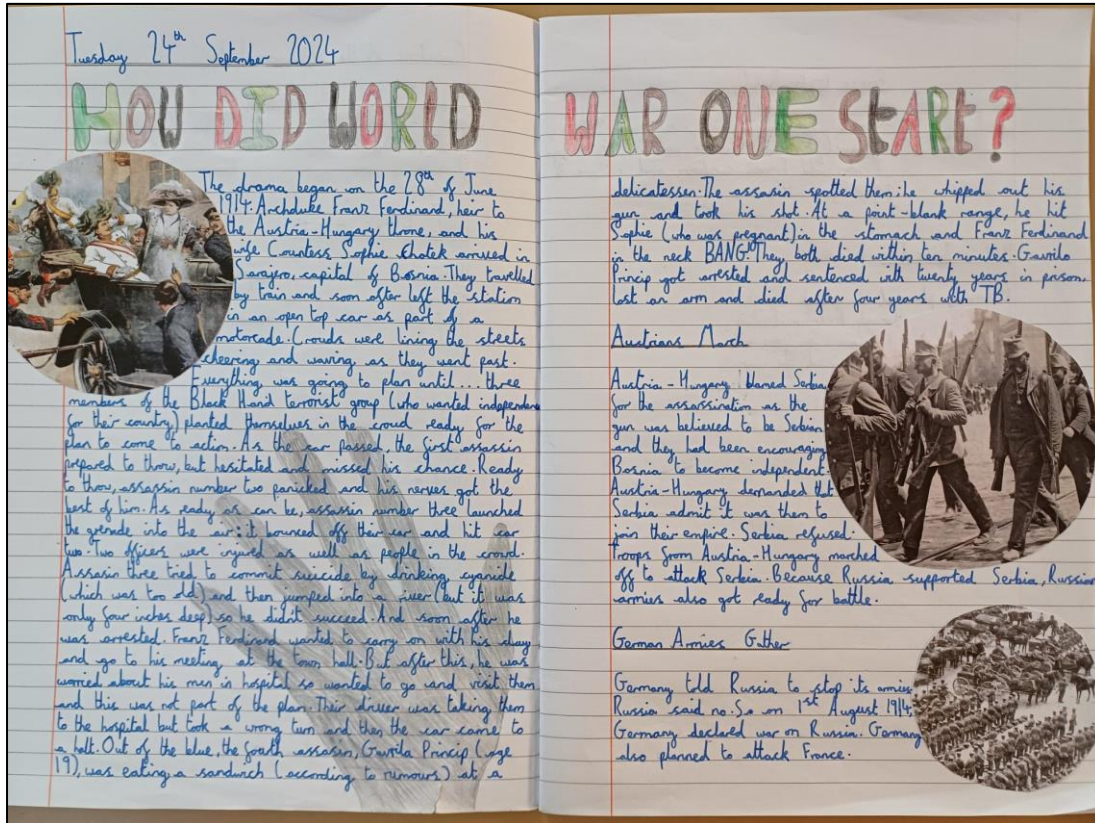 Tuesday 24th September 2024
HOW DID WORLD
The drama began on the 28th of June
1914. Archduke Franz Ferdinand, heir to
the Austria-Hungary throne, and his
wife Countess Sophie Chotek arrived in
Sarajro, capital of Bosnia. They travelled
by train and soon after left the station
in an open top car as part of a
motorcade. Crowds were lining the streets
cheering and waving as they went past.
Everything was going to plan until... three
members of the Black Hand terrorist group (who wanted independence
for their country) planted themselves in the croud ready for the
plan to come to action. As the car passed, the first assassin
prepared to throw, but hesitated and missed his chance. Ready
to throw, assassin number two panicked and his nerves got the
best of him. As ready as can be, assassin number three launched
the grenade into the air: it bounced off their car and hit car
two. Two officers were injured as well as people in the crowd.
Assasin three tried to commit suicide by drinking cyanide
(which was too old) and then jumped into a river (but it was
only four inches deep) so he didn't succeed. And soon after he
was arrested. Franz Ferdinand wanted to carry on with his day
and go to his meeting at the town hall. But after this, he was
worried about his men in hospital so wanted to go and visit them
and this was not part of the plan. Their driver was taking them
to the hospital but took a wrong turn and then the car came to
a halt. Out of the blue, the fourth assasin, Gavrila Princip (age
19), was eating a sandwich (according to rumours) at a
WAR ONE StARt?
delicatessen. The assasin spotted them: he whipped out his
gun and took his shot. At a point-blank range, he hit
Sophie (who was pregnant) in the stomach and Franz Ferdinand
in the neck BANG. They both died within ten minutes. Gavrilo
Princip got arrested and sentenced with twenty years in prison,
lost an arm and died after four years with TB.
Austrians March
Austria-Hungary blamed Serbia
for the assassination as the
gun was believed to be Serbian
and they had been encouraging
Bosnia to become independent.
Austria-Hungary demanded that
Serbia admit it was them to
join their empire. Serbia refused.
Troops from Austria-Hungary marched
off to attack Serbia. Because Russia supported Serbia, Russian
armies also got ready for battle.
German Armies Gather
Germany told Russia to stop its armies
Russia said no. So on 1st August 1914
Germany declared war on Russia. Germany
also planned to attack France.